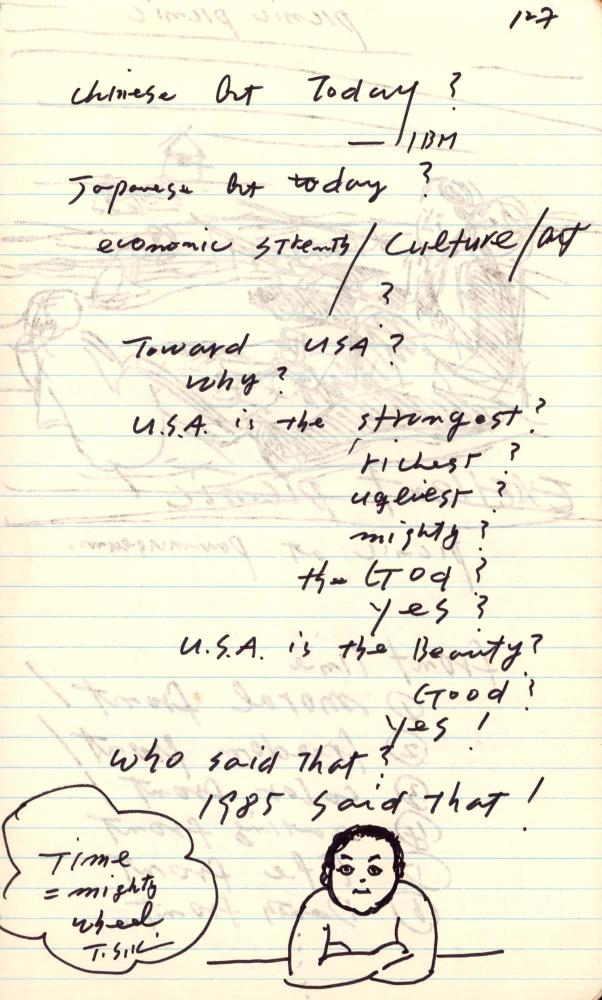 127
Chinese Art Today?
— IBM
Japanese Art today?
economic strenth / Culture / Art
?
Toward USA?
why?
U.S.A. is the strongest?
richest?
ugliest?
mighty?
the God?
yes?
U.S.A. is the Beauty?
Good?
yes!
who said that?
1985 said that!
Time
= mighty
wheel